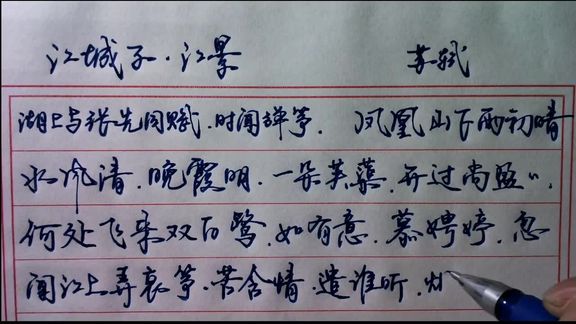 江城子·江景 苏轼
湖上与张先同赋,时闻弹筝. 凤凰山下雨初晴
水风清.晚霞明.一朵芙蕖.开过尚盈〃.
何处飞来双白鹭.如有意.慕娉婷.忽
闻江上弄哀筝.苦含情.遣谁听.